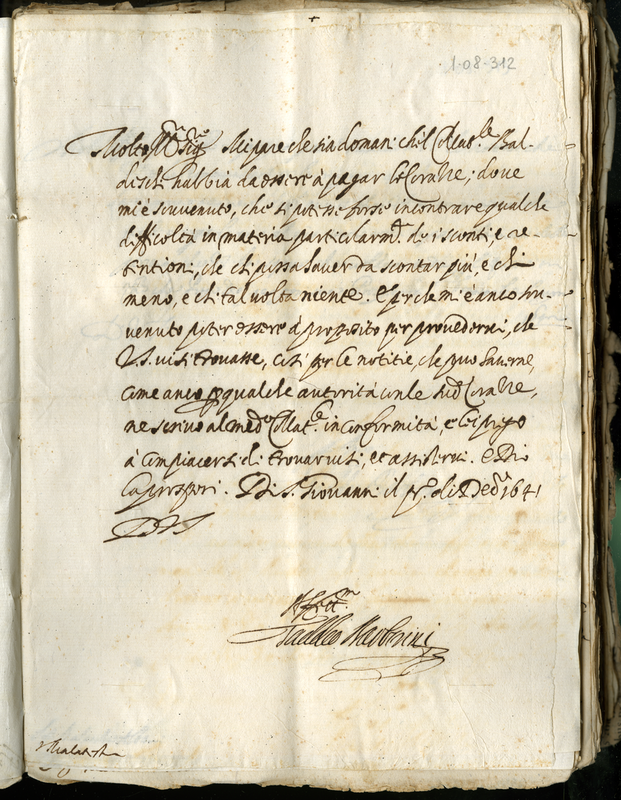 1-08-312
Molto Ill.re Sig.re Mi pare che sia domani ch'il Collat.le Bal-
deschi habbia da essere à pagar le Corazze; dove
mi é souvenuto, che si potesse forse incontrare qualche
difficoltà in materia particolarm.te de i sconti, e re-
tentioni, che chi possa haver da scontar più, e chi
meno, e chi tal volta niente. e perche mi è anco sou-
venuto poter essere à proposito per provedervi, che
V.S. vi si trovasse, così per le notitie, che può haverne,
come anco p qualche autorità con le sud.e Corazze,
ne scrivo al med.o Collat.le in conformità, e lei prego
à compiacersi di trovarvisi, et assistervi. e Dio
la prosperi. Di S. Giovanni il p.o di Xbre 1641
D V S
Aff.mo
Taddeo Barberini